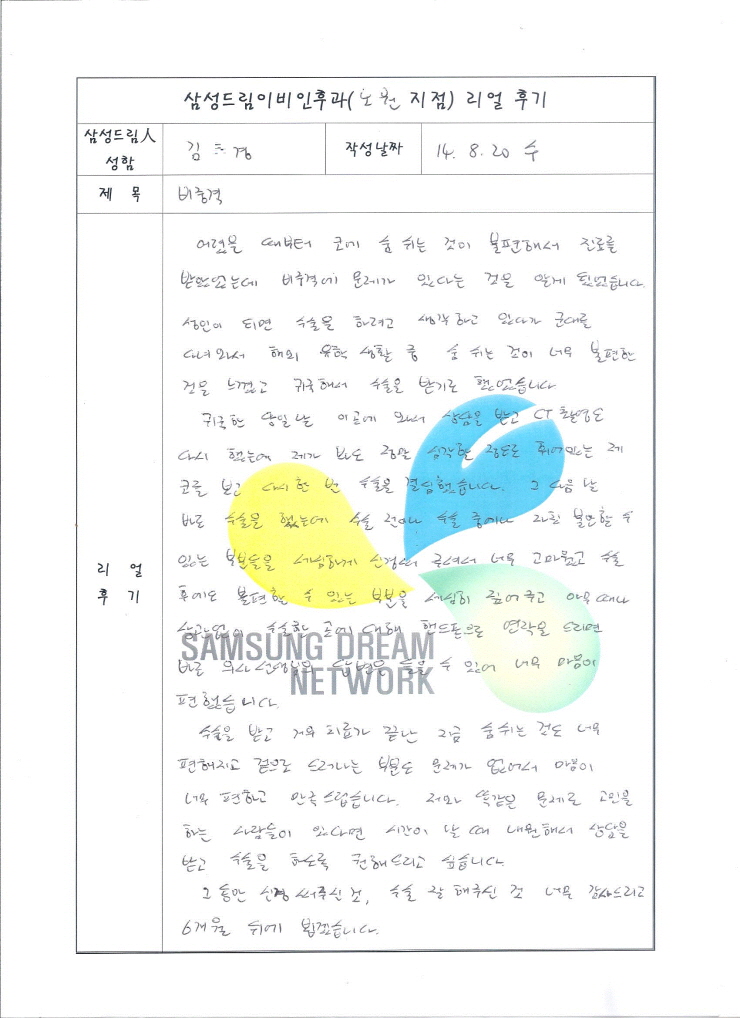 삼성드림이비인후과(노원 지점) 리얼 후기
삼성드림人 성함
김 경
작성날짜
14. 8. 20 수
제 목
비중격
리 얼 후 기
어렸을 때부터 코에 숨 쉬는 것이 불편해서 진료를
받았었는데 비중격에 문제가 있다는 것을 알게 됬었습니다.
성인이 되면 수술을 하려고 생각하고 있다가 군대를
다녀와서 해외 유학 생활 중 숨 쉬는 것이 너무 불편한
것을 느꼈고 귀국해서 수술을 받기로 했었습니다
귀국한 당일날 이곳에 와서 상담을 받고 CT 촬영도
다시 했는데 제가 봐도 정말 심각한 정도로 휘어있는 제
코를 보고 다시 한 번 수술을 결심했습니다. 그 다음 날
바로 수술을 했는데 수술 전이나 수술 중에나 자칫 불안할 수
있는 부분들을 세심하게 신경써 주셔서 너무 고마웠고 수술
후에도 불편할 수 있는 부분을 세심히 짚어주고 아무때나
상관없이 수술한 곳에 대해 핸드폰으로 연락을 드리면
바로 의사선생님의 답변을 들을 수 있어 너무 마음이
편했습니다.
수술을 받고 거의 치료가 끝난 지금 숨쉬는 것도 너무
편해지고 겉으로 드러나는 부분도 문제가 없어서 마음이
너무 편하고 만족스럽습니다. 저와 똑같은 문제로 고민을
하는 사람들이 있다면 시간이 날 때 내원해서 상담을
받고 수술을 하도록 권해드리고 싶습니다
그동안 신경 써주신 것, 수술 잘 해주신 것 너무 감사드리고
6개월 뒤에 뵙겠습니다.
SAMSUNG DREAM
NETWORK